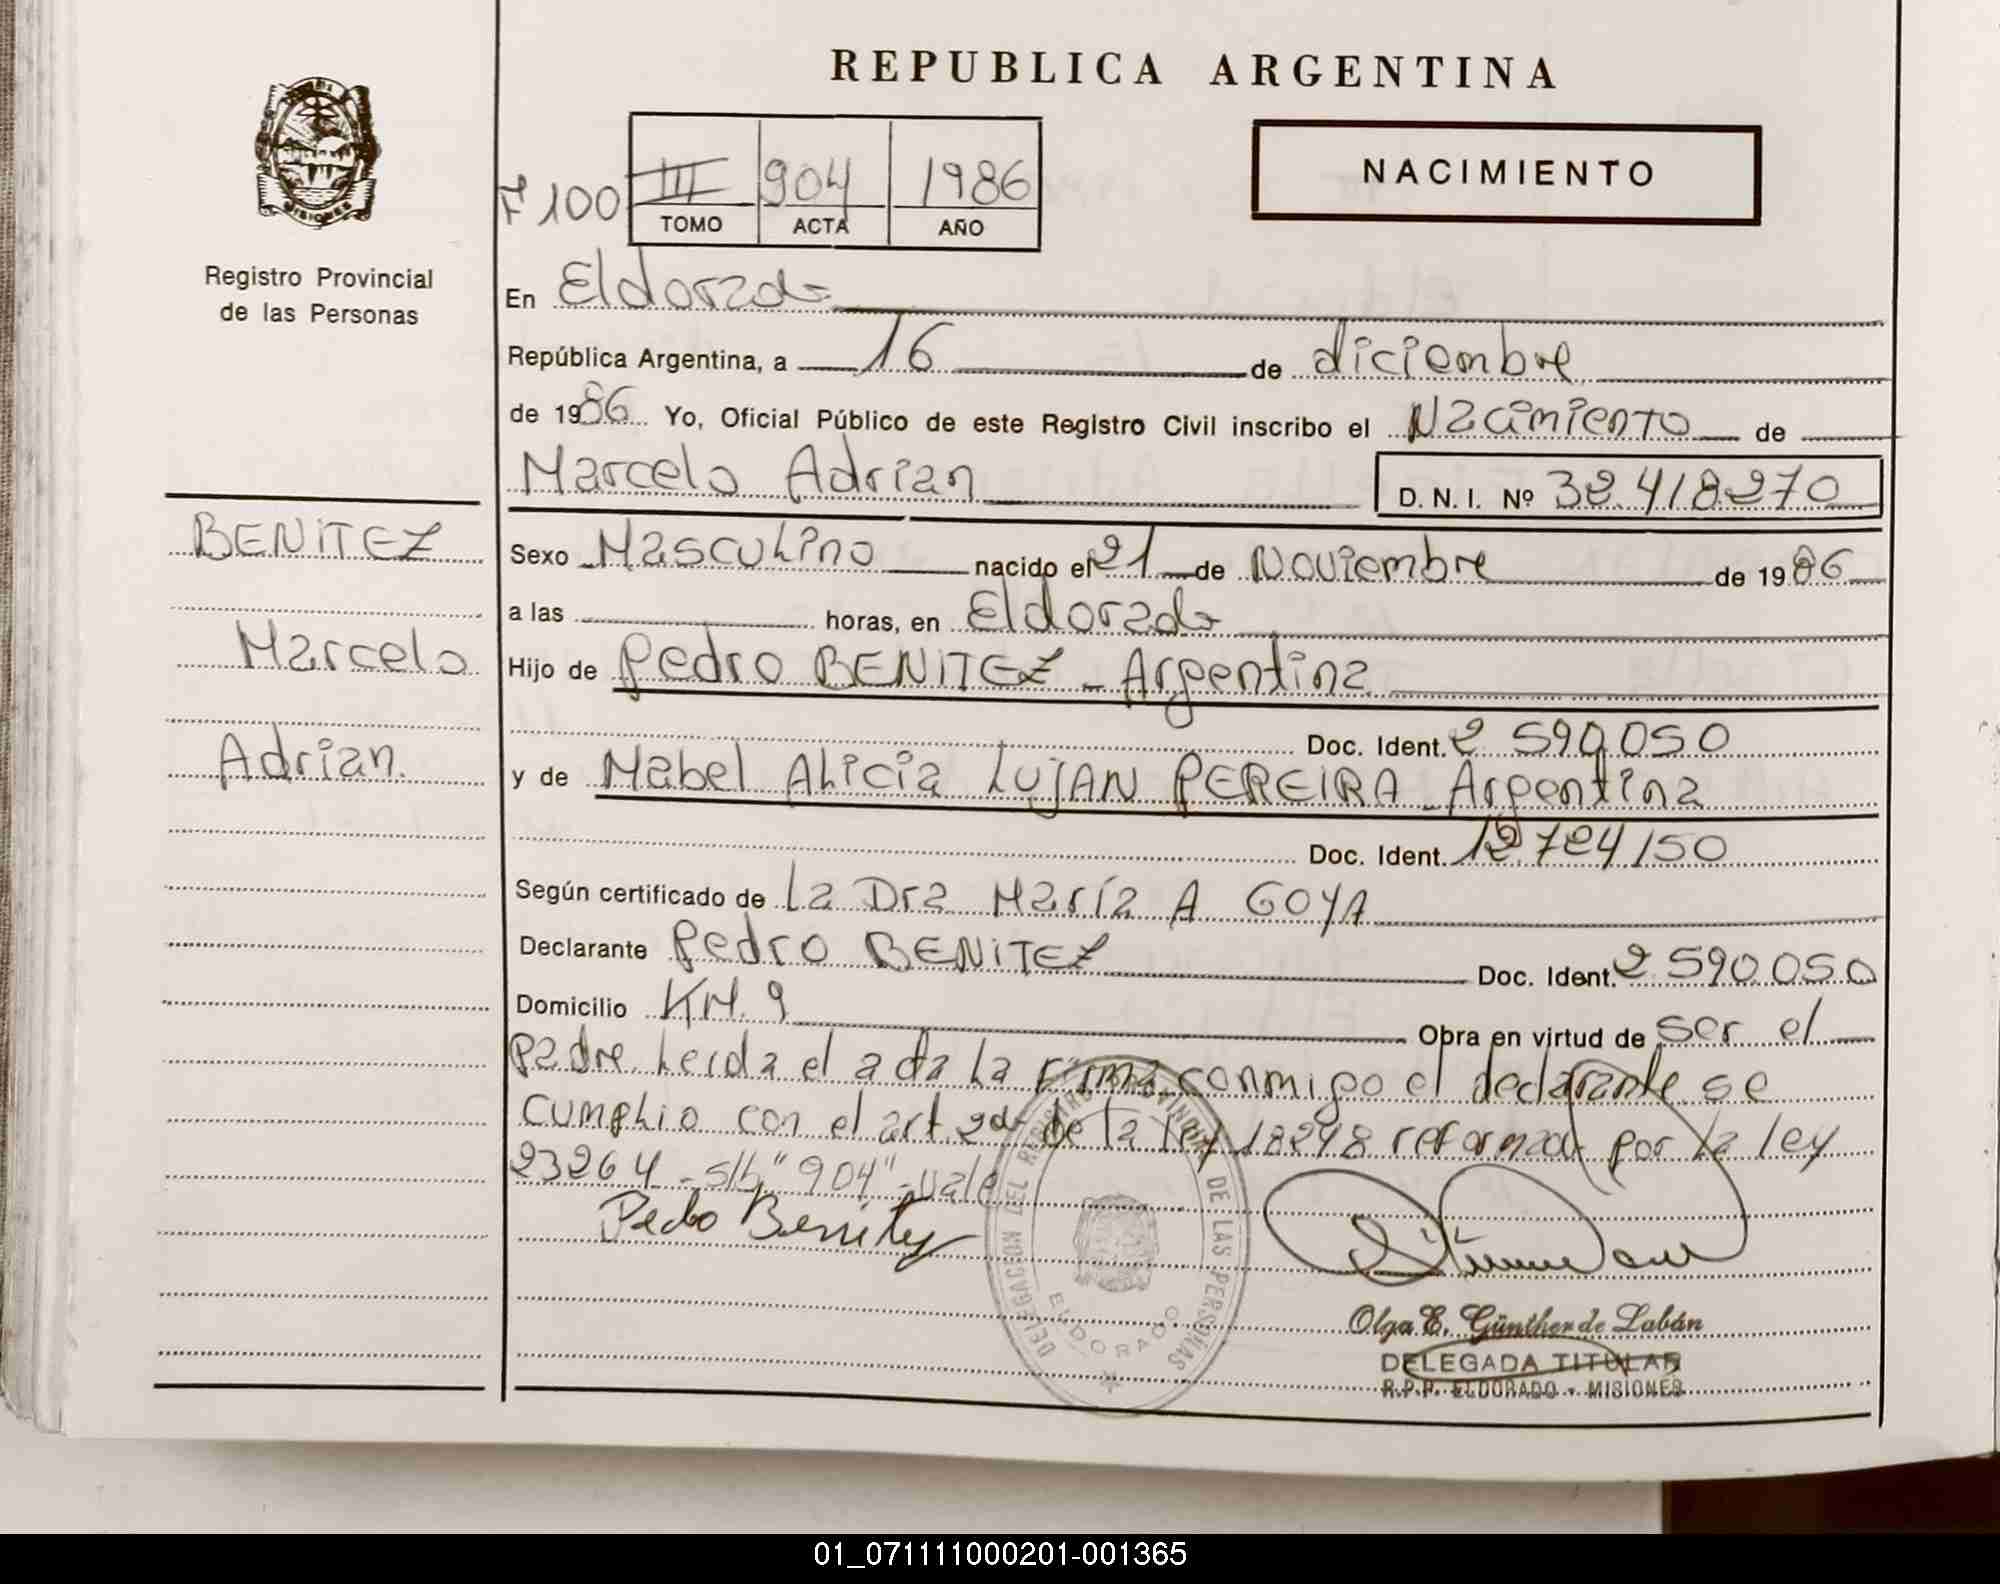 REPUBLICA ARGENTINA
MISIONES
Registro Provincial
de las Personas
NACIMIENTO
F 100
III 904 1986
TOMO ACTA AÑO
En Eldorado
República Argentina, a 16 de diciembre
de 1986 Yo, Oficial Público de este Registro Civil inscribo el Nacimiento de
Marcelo Adrian D. N. I. Nº 32.418.270
BENITEZ
Marcelo
Adrian.
Sexo Masculino nacido el 21 de Noviembre de 1986
a las horas, en Eldorado
Hijo de Pedro BENITEZ - Argentina
Doc. Ident. 2 590.050
y de Mabel Alicia LUJAN PEREIRA - Argentina
Doc. Ident. 12.724150
Según certificado de La Dra María A GOYA
Declarante Pedro BENITEZ Doc. Ident. 2.590.050
Domicilio KM. 9 Obra en virtud de ser el
Padre. Leida el acta la firma conmigo el declarante se
cumplio con el art. 2do de la ley 18248 reformado por la ley
23264 - s/b "904" - vale
Pedro Benitez
DELEGACION DEL REGISTRO PROVINCIAL DE LAS PERSONAS
ELDORADO
Olga E. Günther de Labán
DELEGADA TITULAR
R.P.P. ELDORADO - MISIONES
01_071111000201-001365